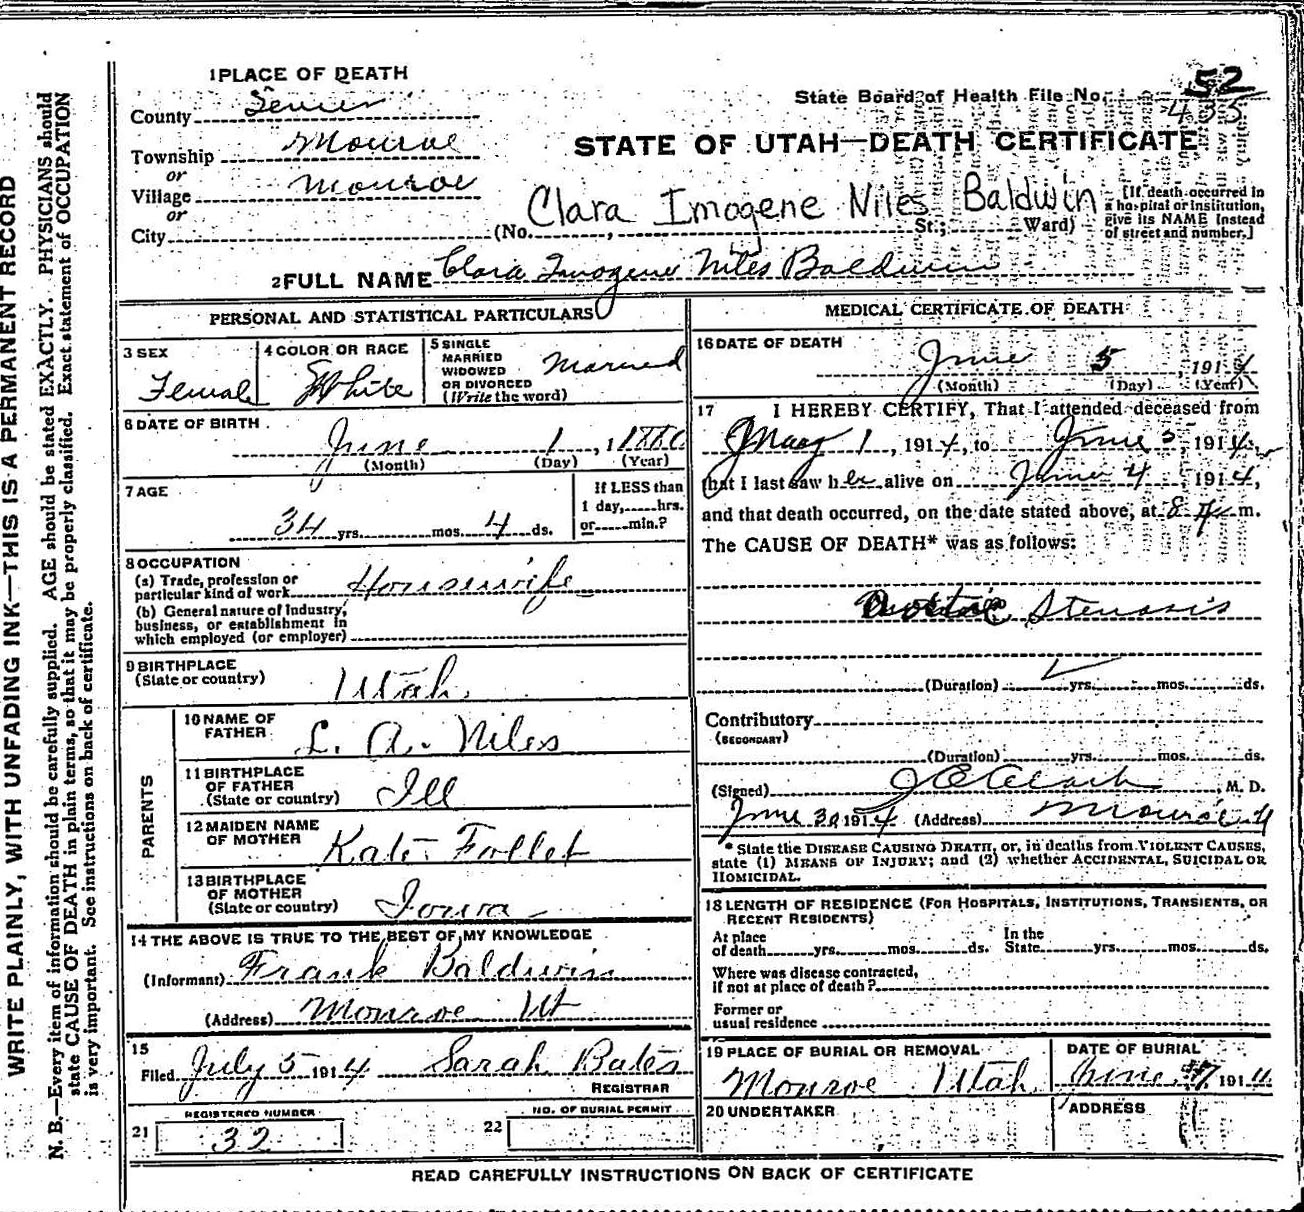 WRITE PLAINLY, WITH UNFADING INK—THIS IS A PERMANENT RECORD
N. B.—Every item of information should be carefully supplied. AGE should be stated EXACTLY. PHYSICIANS should
state CAUSE OF DEATH in plain terms, so that it may be properly classified. Exact statement of OCCUPATION
is very important. See instructions on back of certificate.
1 PLACE OF DEATH
County Sevier
Township Monroe
or
Village Monroe
or
City
State Board of Health File No. 52
435
STATE OF UTAH—DEATH CERTIFICATE
Clara Imogene Niles Baldwin
(No. , St.; Ward)
[If death occurred in
a hospital or institution,
give its NAME instead
of street and number.]
2 FULL NAME Clara Imogene Niles Baldwin
PERSONAL AND STATISTICAL PARTICULARS
3 SEX
Female
4 COLOR OR RACE
White
5 SINGLE
MARRIED
WIDOWED
OR DIVORCED
(Write the word)
Married
6 DATE OF BIRTH
June 1, 1880
(Month) (Day) (Year)
7 AGE
34 yrs. mos. 4 ds.
If LESS than
1 day, hrs.
or min.?
8 OCCUPATION
(a) Trade, profession or
particular kind of work Housewife
(b) General nature of Industry,
business, or establishment in
which employed (or employer)
9 BIRTHPLACE
(State or country)
Utah
PARENTS
10 NAME OF
FATHER
L. A. Niles
11 BIRTHPLACE
OF FATHER
(State or country)
Ill
12 MAIDEN NAME
OF MOTHER
Kate Follet
13 BIRTHPLACE
OF MOTHER
(State or country)
Iowa
14 THE ABOVE IS TRUE TO THE BEST OF MY KNOWLEDGE
(Informant) Frank Baldwin
(Address) Monroe Ut
15
Filed July 5 1914 Sarah Bates
REGISTRAR
21
REGISTERED NUMBER
32
22
NO. OF BURIAL PERMIT
MEDICAL CERTIFICATE OF DEATH
16 DATE OF DEATH
June 5, 1914
(Month) (Day) (Year)
17 I HEREBY CERTIFY, That I attended deceased from
May 1, 1914, to June 5, 1914,
that I last saw her alive on June 4, 1914,
and that death occurred, on the date stated above, at 8 m.
The CAUSE OF DEATH* was as follows:
Stenosis
(Duration) yrs. mos. ds.
Contributory
(SECONDARY)
(Duration) yrs. mos. ds.
(Signed) , M. D.
June 30 1914 (Address) Monroe
* State the DISEASE CAUSING DEATH, or, in deaths from VIOLENT CAUSES,
state (1) MEANS OF INJURY; and (2) whether ACCIDENTAL, SUICIDAL OR
HOMICIDAL.
18 LENGTH OF RESIDENCE (FOR HOSPITALS, INSTITUTIONS, TRANSIENTS, OR
RECENT RESIDENTS)
At place
of death yrs. mos. ds.
In the
State yrs. mos. ds.
Where was disease contracted,
if not at place of death?
Former or
usual residence
19 PLACE OF BURIAL OR REMOVAL
Monroe Utah
DATE OF BURIAL
June 7 1914
20 UNDERTAKER
ADDRESS
READ CAREFULLY INSTRUCTIONS ON BACK OF CERTIFICATE